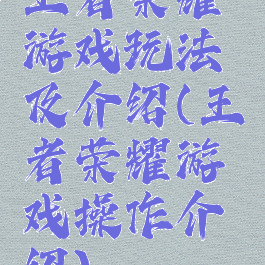 王者荣耀
游戏玩法
及介绍(王
者荣耀游
戏操作介
绍)